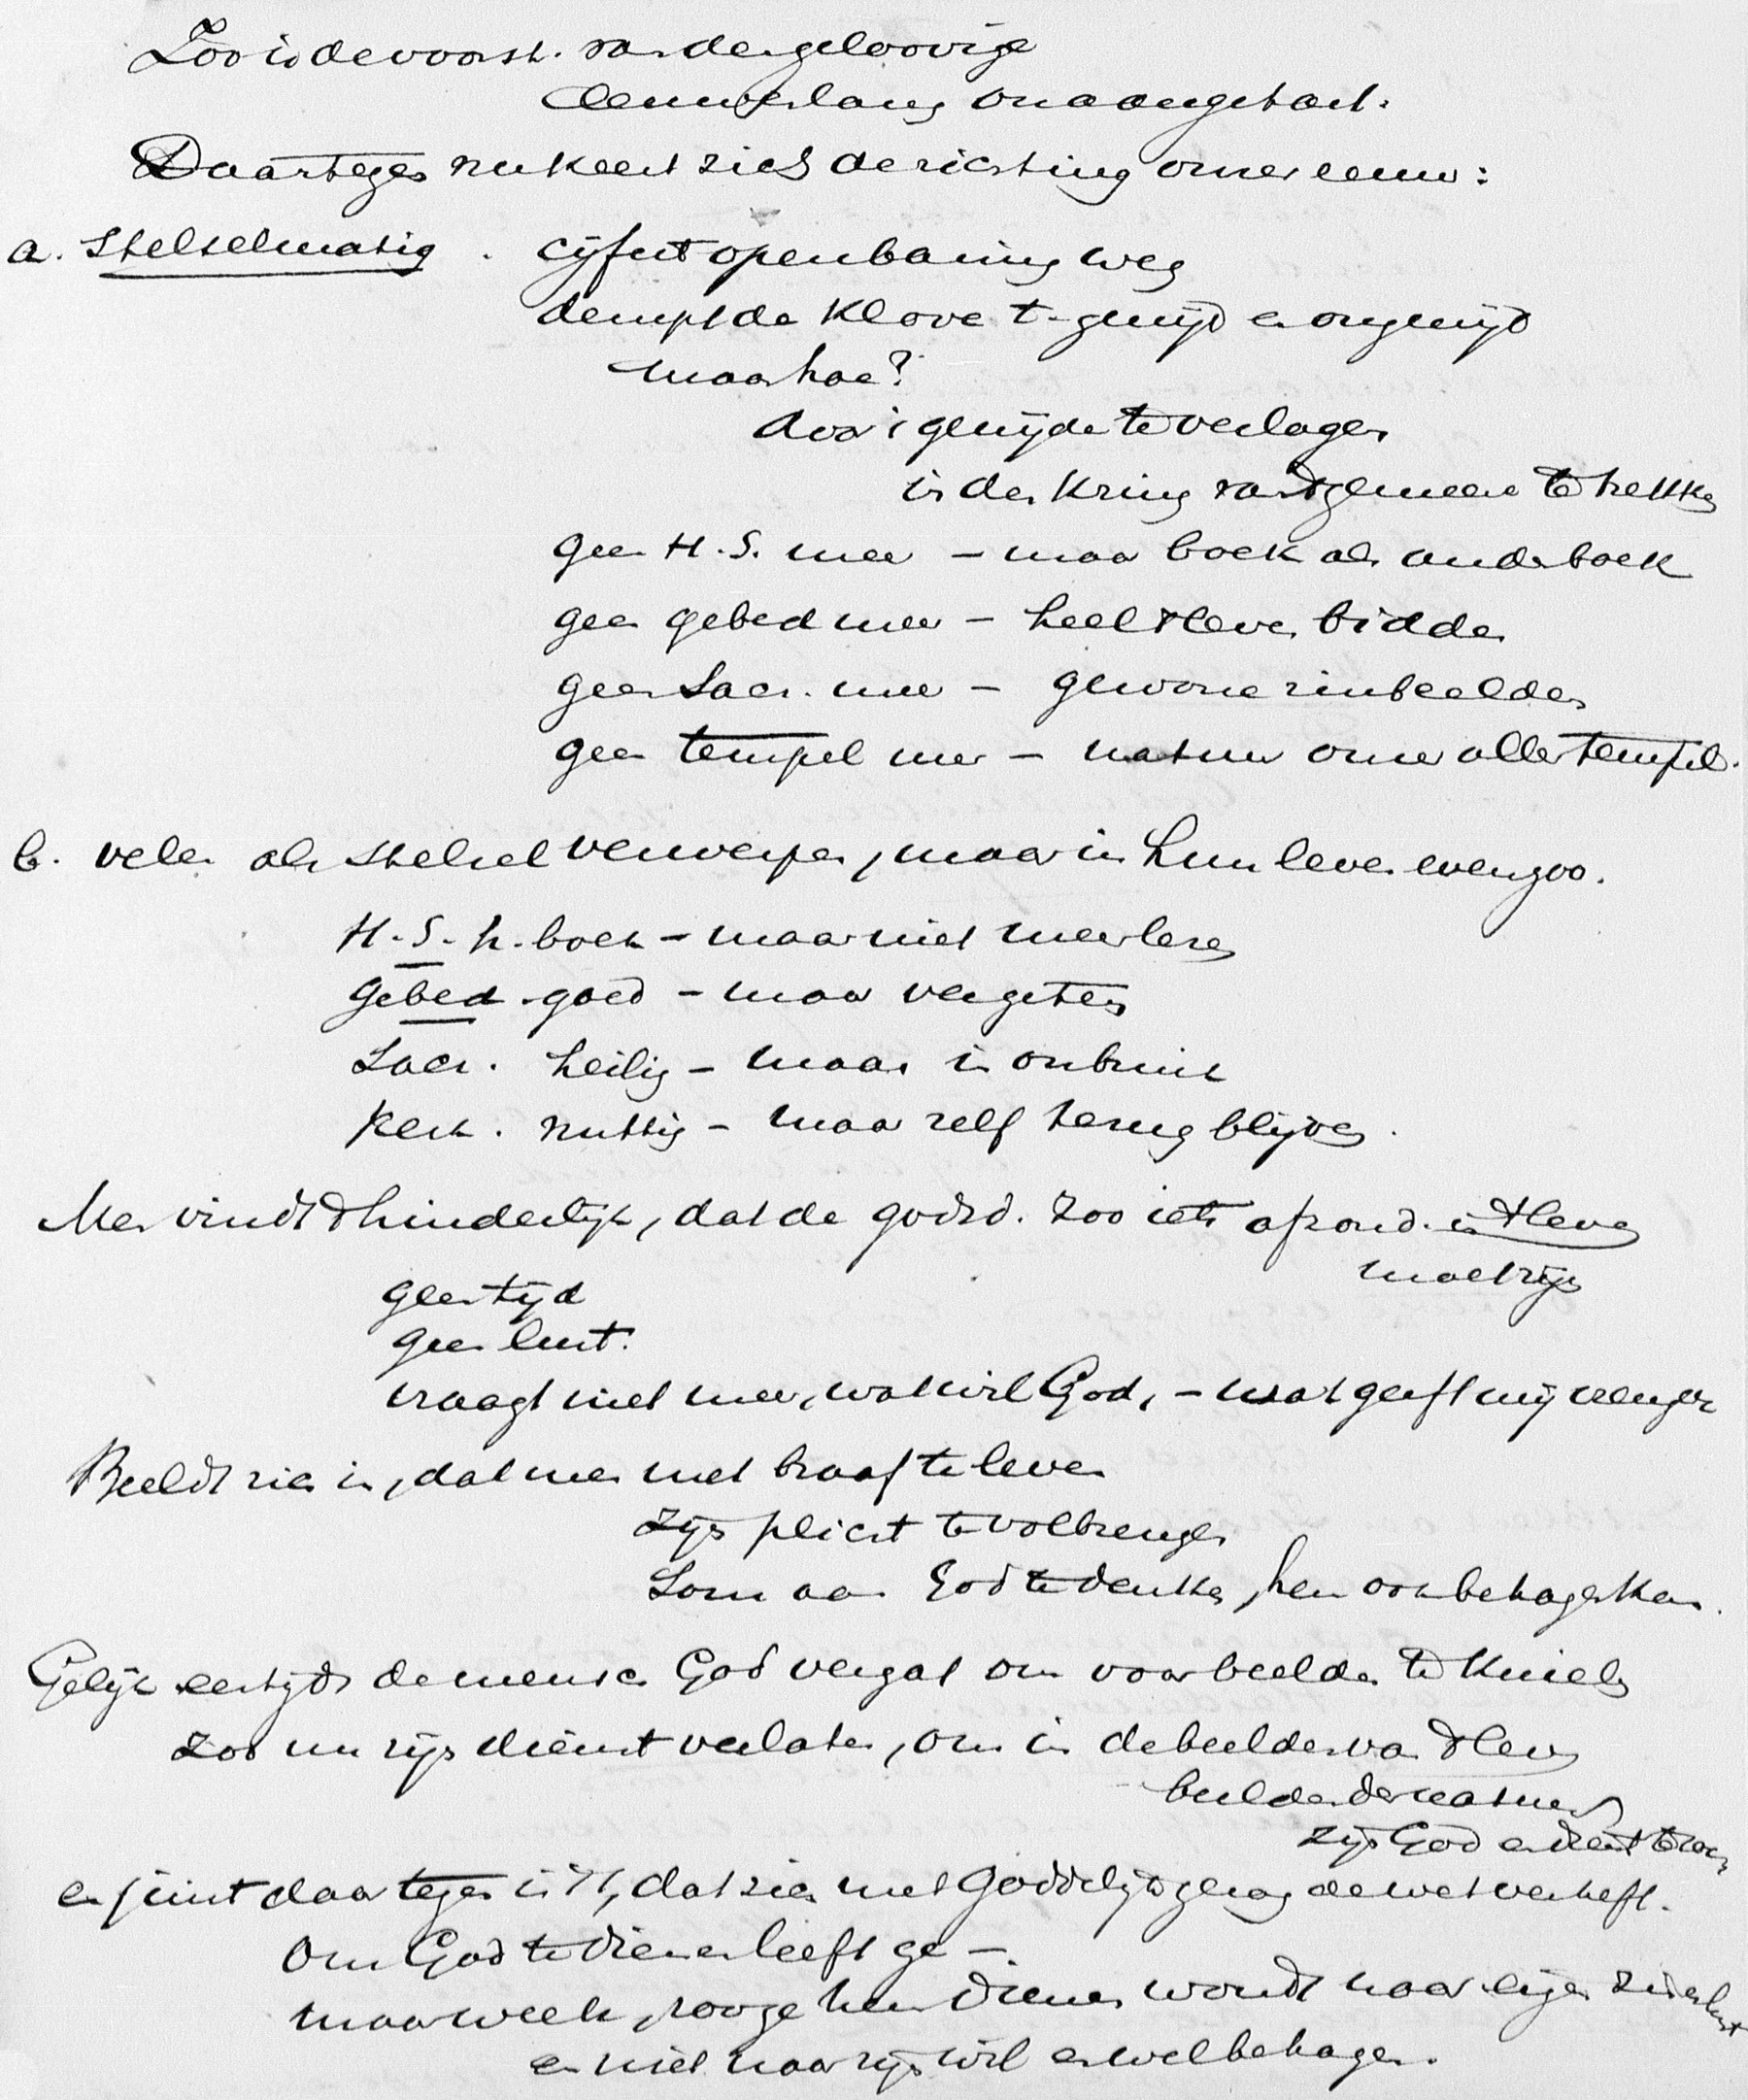 Zoo is de voorst. van den geloovige
eeuwenlang onaangetast.
Daartegen nu keert zich de richting onzer eeuw:
a. Stelselmatig. cijfert openbaring weg
dempt de klove t. gewijd en ongewijd
maar hoe?
door 't gewijde te verlagen
in den kring van 't gemeene te trekken
geen H.S. meer – maar boek als ander boek
geen gebed meer – heel 't leven bidden
geen Sacr. meer – gewone zinbeelden
geen tempel meer – natuur onze aller tempel.
b. velen als stelsel verwerpen, maar in hun leven evenzoo.
H.S. h. boek – maar niet meer lezen
Gebed. goed – maar vergeten
Sacr. heilig – maar in onbruik
Kerk. nuttig – maar zelf terug blijven.
Men vindt 't hinderlijk, dat de godsd. zoo iets afzond. in 't leven
moet zijn
geen tijd
geen lust.
vraagt niet meer, wat wil God, – wat geeft mij
Beeldt zich in, dat men met braaf te leven
zijn plicht te volbrengen
Soms aan God te denken, hem ook behagen kan.
Gelijk eertijds de mensch God vergat om voor beelden te knielen
zoo nu zijn dienst verlaten, om in de beelden van 't leven
beelden der natuur
zijn God en dienst te zoeken
en juist daartegen is 't, dat zich met Goddelijk gezag de wet verheft.
Om God te dienen leeft ge –
maar week, zoo ge hem dienen wondt naar eigen zin en lust
en niet naar zijn wil en welbehagen.